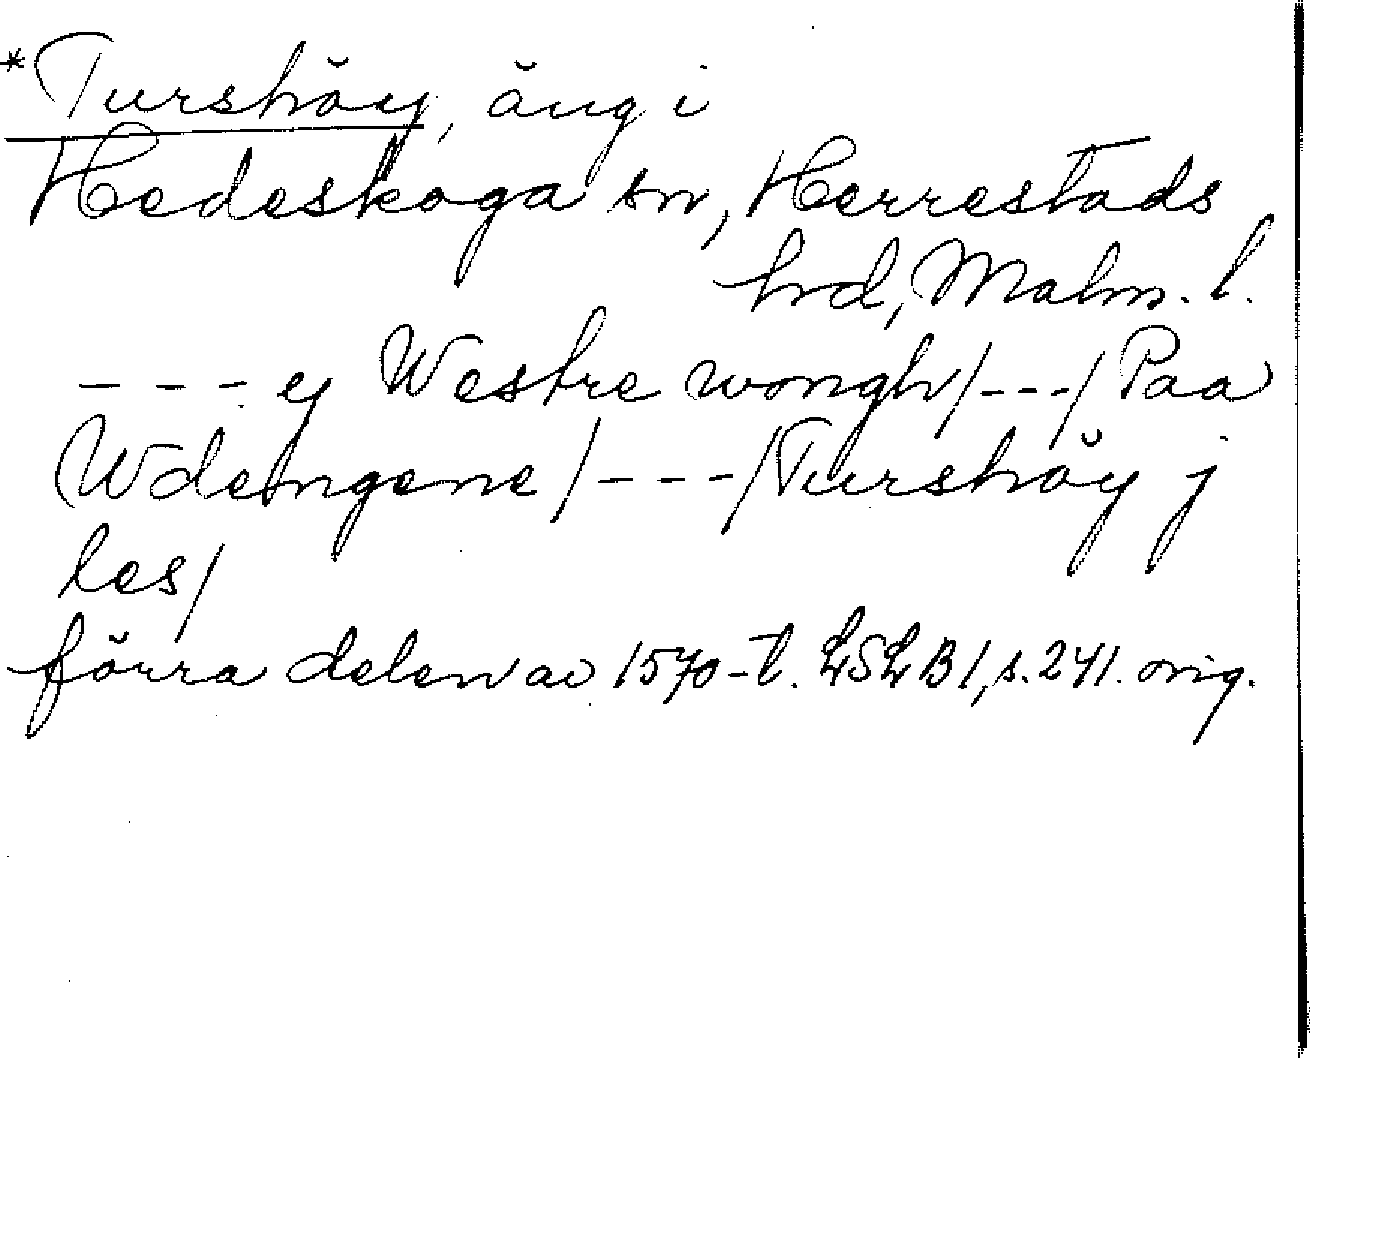 *Turshöy, äng i
Hedeskoga sn, Herrestads
hrd, Malm. l.
--- ey Westre wongh/---/Paa
Wdengene/---/Turshöy j
les/
förra delen av 1570-t. LSLB1, s. 241. orig.